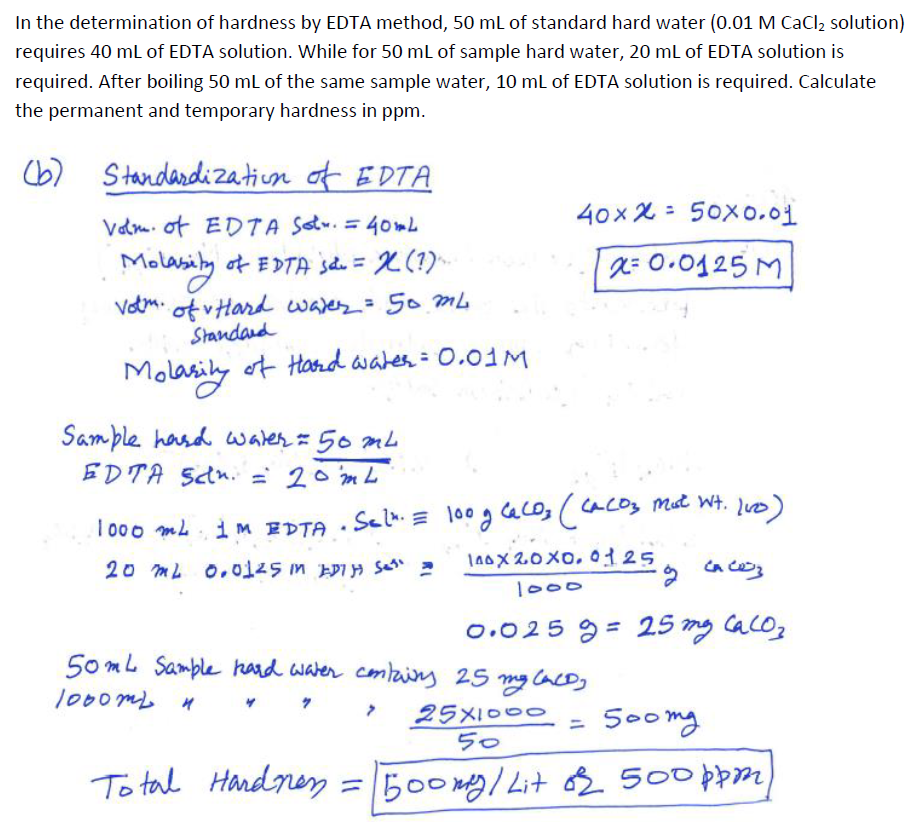 In the determination of hardness by EDTA method, 50 mL of standard hard water (0.01 M CaCl₂ solution)
requires 40 mL of EDTA solution. While for 50 mL of sample hard water, 20 mL of EDTA solution is
required. After boiling 50 mL of the same sample water, 10 mL of EDTA solution is required. Calculate
the permanent and temporary hardness in ppm.
(b) Standardization of EDTA
Volm. of EDTA Soln. = 40mL
40 x x = 50x0.01
Molarity of EDTA sol. = x (?)
x = 0.0125 M
Volm. of Hard water = 50 mL
Standard
Molarity of Hard water = 0.01M
Sample hard water = 50 mL
EDTA soln. = 20 mL
1000 mL 1 M EDTA Soln. ≡ 100 g CaCO₃ (CaCO₃ mol wt. 100)
20 mL 0.0125 M EDTA Soln = 100x20x0.0125 g CaCO₃
1000
0.025 g = 25 mg CaCO₃
50mL Sample hard water contains 25 mg CaCO₃
1000mL " " " , 25x1000 = 500mg
50
Total Hardness = 500mg/Lit or 500 ppm